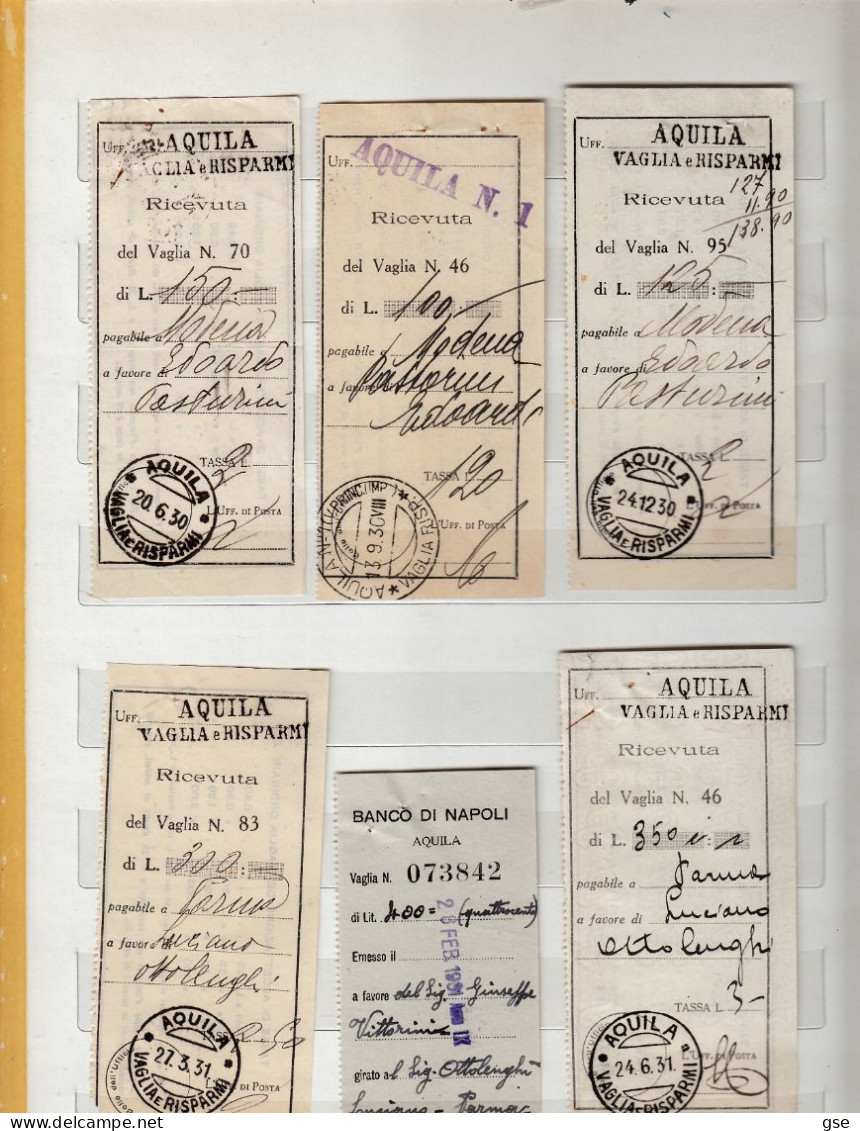 Uff. AQUILA
VAGLIA e RISPARMI
Ricevuta
del Vaglia N. 70
di L. 150
pagabile a Modena
a favore di Edoardo
Pasturini
TASSA L. 2
L'Uff. di Posta
AQUILA
20.6.30
VAGLIA E RISPARMI
Uff.
AQUILA N. 1
Ricevuta
del Vaglia N. 46
di L. 100
pagabile a Modena
a favore Pastorini
Edoardo
TASSA L. 1 20
L'Uff. di Posta
13.9.30 VIII
Uff. AQUILA
VAGLIA e RISPARMI
127
11.90
138.90
Ricevuta
del Vaglia N. 95
di L. 125
pagabile a Modena
a favore di Edoardo
Pasturini
TASSA L. 2
L'Uff. di Posta
AQUILA
24.12.30
VAGLIA E RISPARMI
Uff. AQUILA
VAGLIA e RISPARMI
Ricevuta
del Vaglia N. 83
di L. 300
pagabile a Parma
a favore di Luciano
Ottolenghi
2.50
di Posta
AQUILA
27.3.31.
VAGLIA E RISPARMI
BANCO DI NAPOLI
AQUILA
Vaglia N. 073842
di Lit. 400= (quattrocento)
FEB 1931 Anno IX
Emesso il
a favore del Sig. Giuseppe
Vittorini
girato al Sig. Ottolenghi
Luciano - Parma
Uff. AQUILA
VAGLIA e RISPARMI
Ricevuta
del Vaglia N. 46
di L. 350
pagabile a Parma
a favore di Luciano
Ottolenghi
TASSA L. 3-
L'Uff. di Posta
AQUILA
24.6.31.
VAGLIA E RISPARMI
www.delcampe.net
gse